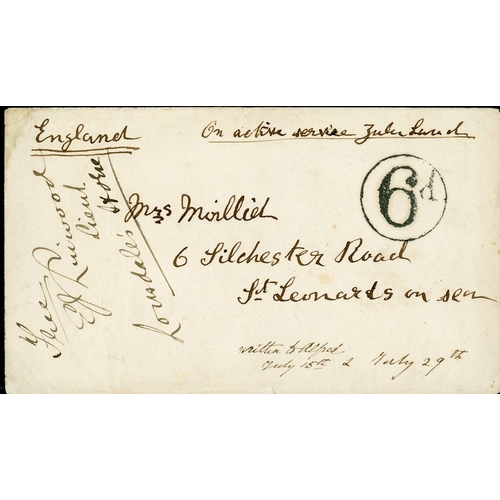 England
On active service Zulu Land
6d
Mrs Moilliet
6 Silchester Road
St Leonards on sea
written to Alfred
July 15th & July 29th
Free
Linwood
Lieut
Lonsdale's Horse